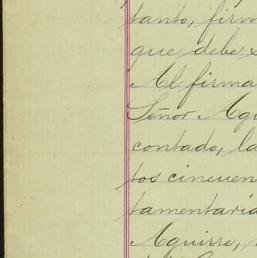 tanto, firma
que debe
Al firma
Señor Agu
contado, la
tos cincuen
tamentaria
Aguirre,